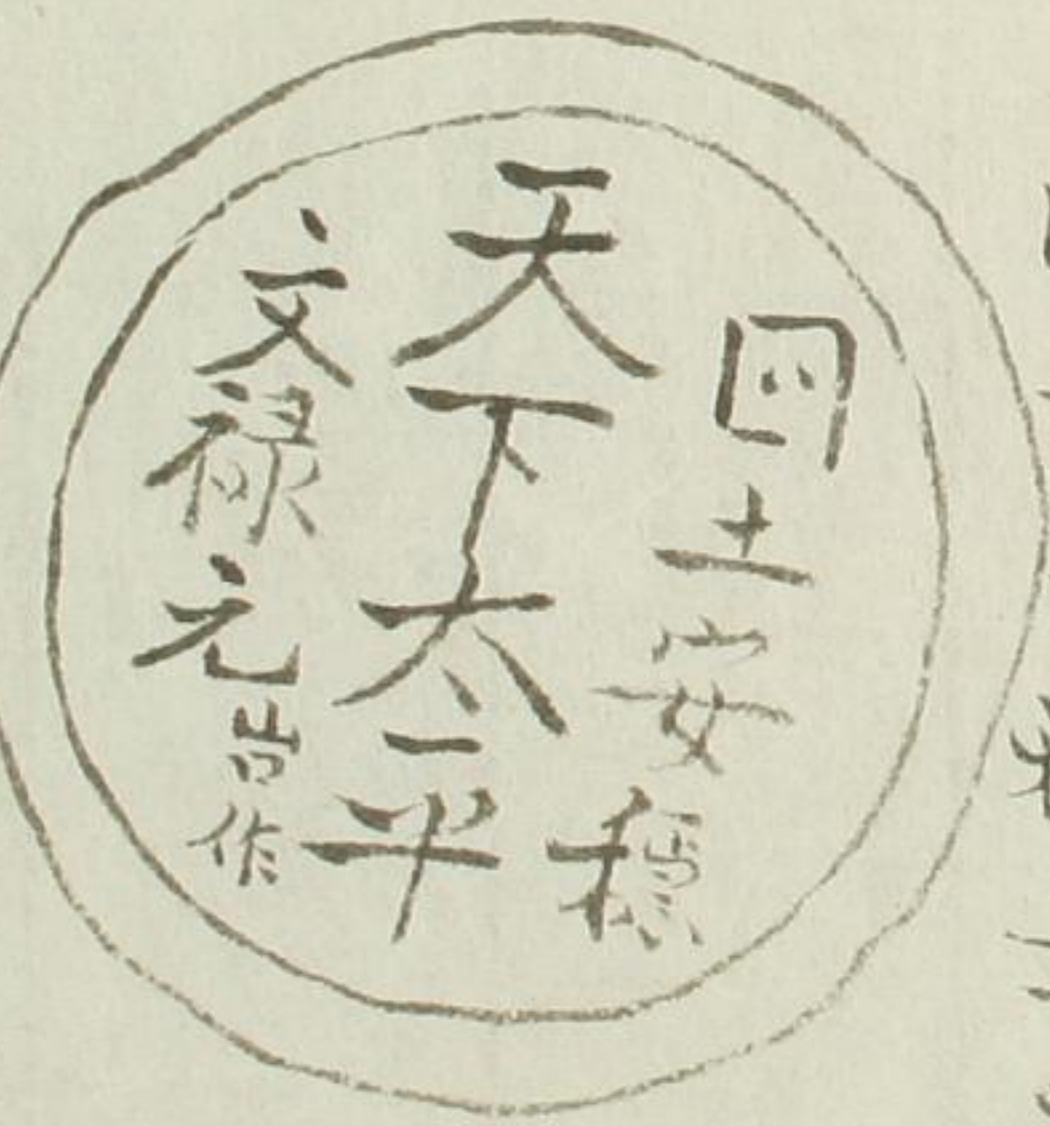 国土安穏
天下太平
文禄元作